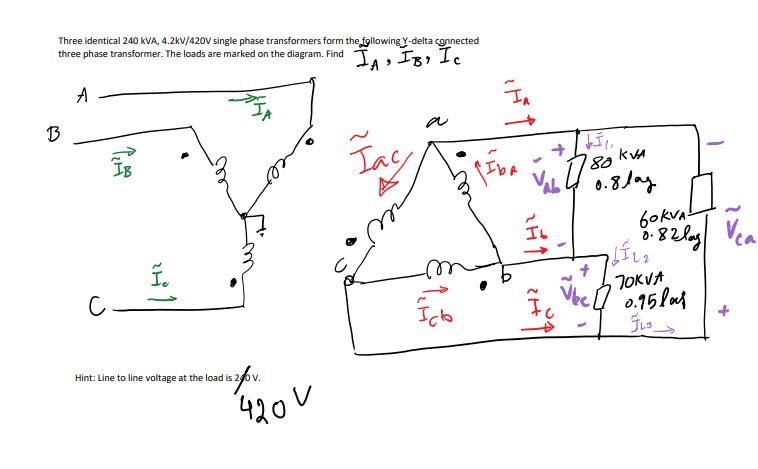 Three identical 240 kVA, 4.2kV/420V single phase transformers form the following Y-delta connected
three phase transformer. The loads are marked on the diagram. Find Ĩ_A, Ĩ_B, Ĩ_C
A
Ĩ_A
B
Ĩ_B
Ĩ_c
C
a
Ĩ_A
Ĩ_ac
Ĩ_bA
Ṽ_Ab
+
-
Ĩ_L1
80 kVA
0.8 lag
-
60kVA
0.82lag
Ṽ_ca
+
Ĩ_b
c
b
Ĩ_cb
Ĩ_c
Ṽ_bc
+
-
Ĩ_L2
70KVA
0.95 lag
Ĩ_L3
Hint: Line to line voltage at the load is 240 V.
420 V